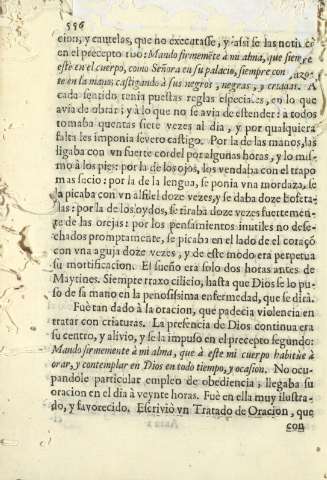 556
cion, y cautelos, que no execatasse, y assi se las notificó
en el precepto 100: Mando firmemẽte à mi alma, que siem-
este en el cuerpo, como Señora en su palacio, siempre con azo-
te en la mano; castigando à sus negros, negras, y criadas. A
cada sentido tenia puestas reglas especiales, en lo que
avia de obrar; y à lo que no se avia de estender: a todos
tomaba quentas siete vezes al dia, y por qualquiera
falta les imponia severo castigo. Por la de las manos, las
ligaba con vn fuerte cordel por algunas horas, y lo mis-
mo à los pies: por la de los ojos, los vendaba con el trapo
mas sucio: por la de la lengua, se ponia vna mordaza, se
la picaba con vn alfilel doze vezes, y se daba doze bofeta-
las: por la de los oydos, se tiraba doze vezes fuertemen-
te de las orejas: por los pensamientos inutiles no dese-
chados promptamente, se picaba en el lado de el coraçõ
con vna aguja doze vezes, y de este modo era perpetua
su mortificacion. El sueño era solo dos horas antes de
Maytines. Siempre traxo cilicio, hasta que Dios se lo pu-
so de su mano en la penosissima enfermedad, que se dirà.
Fuè tan dado à la oracion, que padecia violencia en
tratar con criaturas. La presencia de Dios continua era
su centro, y alivio, y se la impuso en el precepto segundo:
Mando firmemente à mi alma, que à este mi cuerpo habitúe à
orar, y contemplar en Dios en todo tiempo, y ocasion. No ocu-
pandole particular empleo de obediencia, llegaba su
oracion en el dia à veynte horas. Fuè en ella muy ilustra-
do, y favorecido. Escriviò vn Tratado de Oracion, que
con